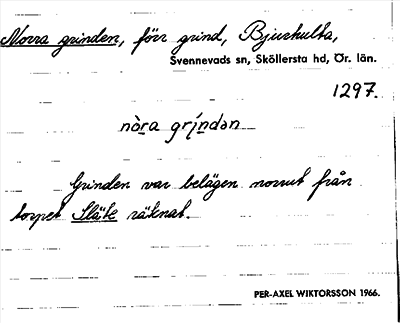 Norra grinden, förr grind, Bjurhulta,
Svennevads sn, Sköllersta hd, Ör. län.
1297.
nòra gri̇́ndən
Grinden var belägen norrut från
torpet Släte räknat.
PER-AXEL WIKTORSSON 1966.